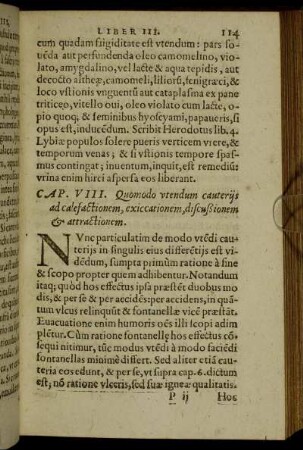 LIBER III. 114
cum quadam frigiditate est vtendum: pars fo-
uẽda aut perfundenda oleo camomelino, vio-
lato, amygdalino, vel lacte & aqua tepidis, aut
decocto altheæ, camomeli, liliorũ, fenigræci, &
loco vstionis vnguentũ aut cataplasma ex pane
triticeo, vitello oui, oleo violato cum lacte, o-
pio quoq; & seminibus hyoscyami, papaueris, si
opus est, inducẽdum. Scribit Herodotus lib. 4.
Lybiæ populos solere pueris verticem vrere, &
temporum venas; & si vstionis tempore spas-
mus contingat; inuentum, inquit, est remediũ:
vrina enim hirci aspersa eos liberant.
CAP. VIII. Quomodo vtendum cauterijs
ad calefactionem, exiccationem, discussionem
& attractionem.
NVnc particulatim de modo vtẽdi cau-
terijs in singulis eius differẽtijs est vi-
dẽdum, sumpta primùm ratione à fine
& scopo propter quem adhibentur. Notandum
itaq; quòd hos effectus ipsa præstẽt duobus mo
dis, & per se & per accidẽs: per accidens, in quã-
tum vlcus relinquũt & fontanellæ vicẽ præstãt.
Euacuatione enim humoris nõs illi scopi adim
plẽtur. Cùm ratione fontanellę hos effectus cõ-
sequi nitimur, tũc modus vtẽdi à modo faciẽdi
fontanellas minimè differt. Sed aliter etiã cau-
teria eos edunt, & per se, vt supra cap. 6. dictum
est, nõ ratione vlceris, sed suæ igneæ qualitatis.
P ij Hoc